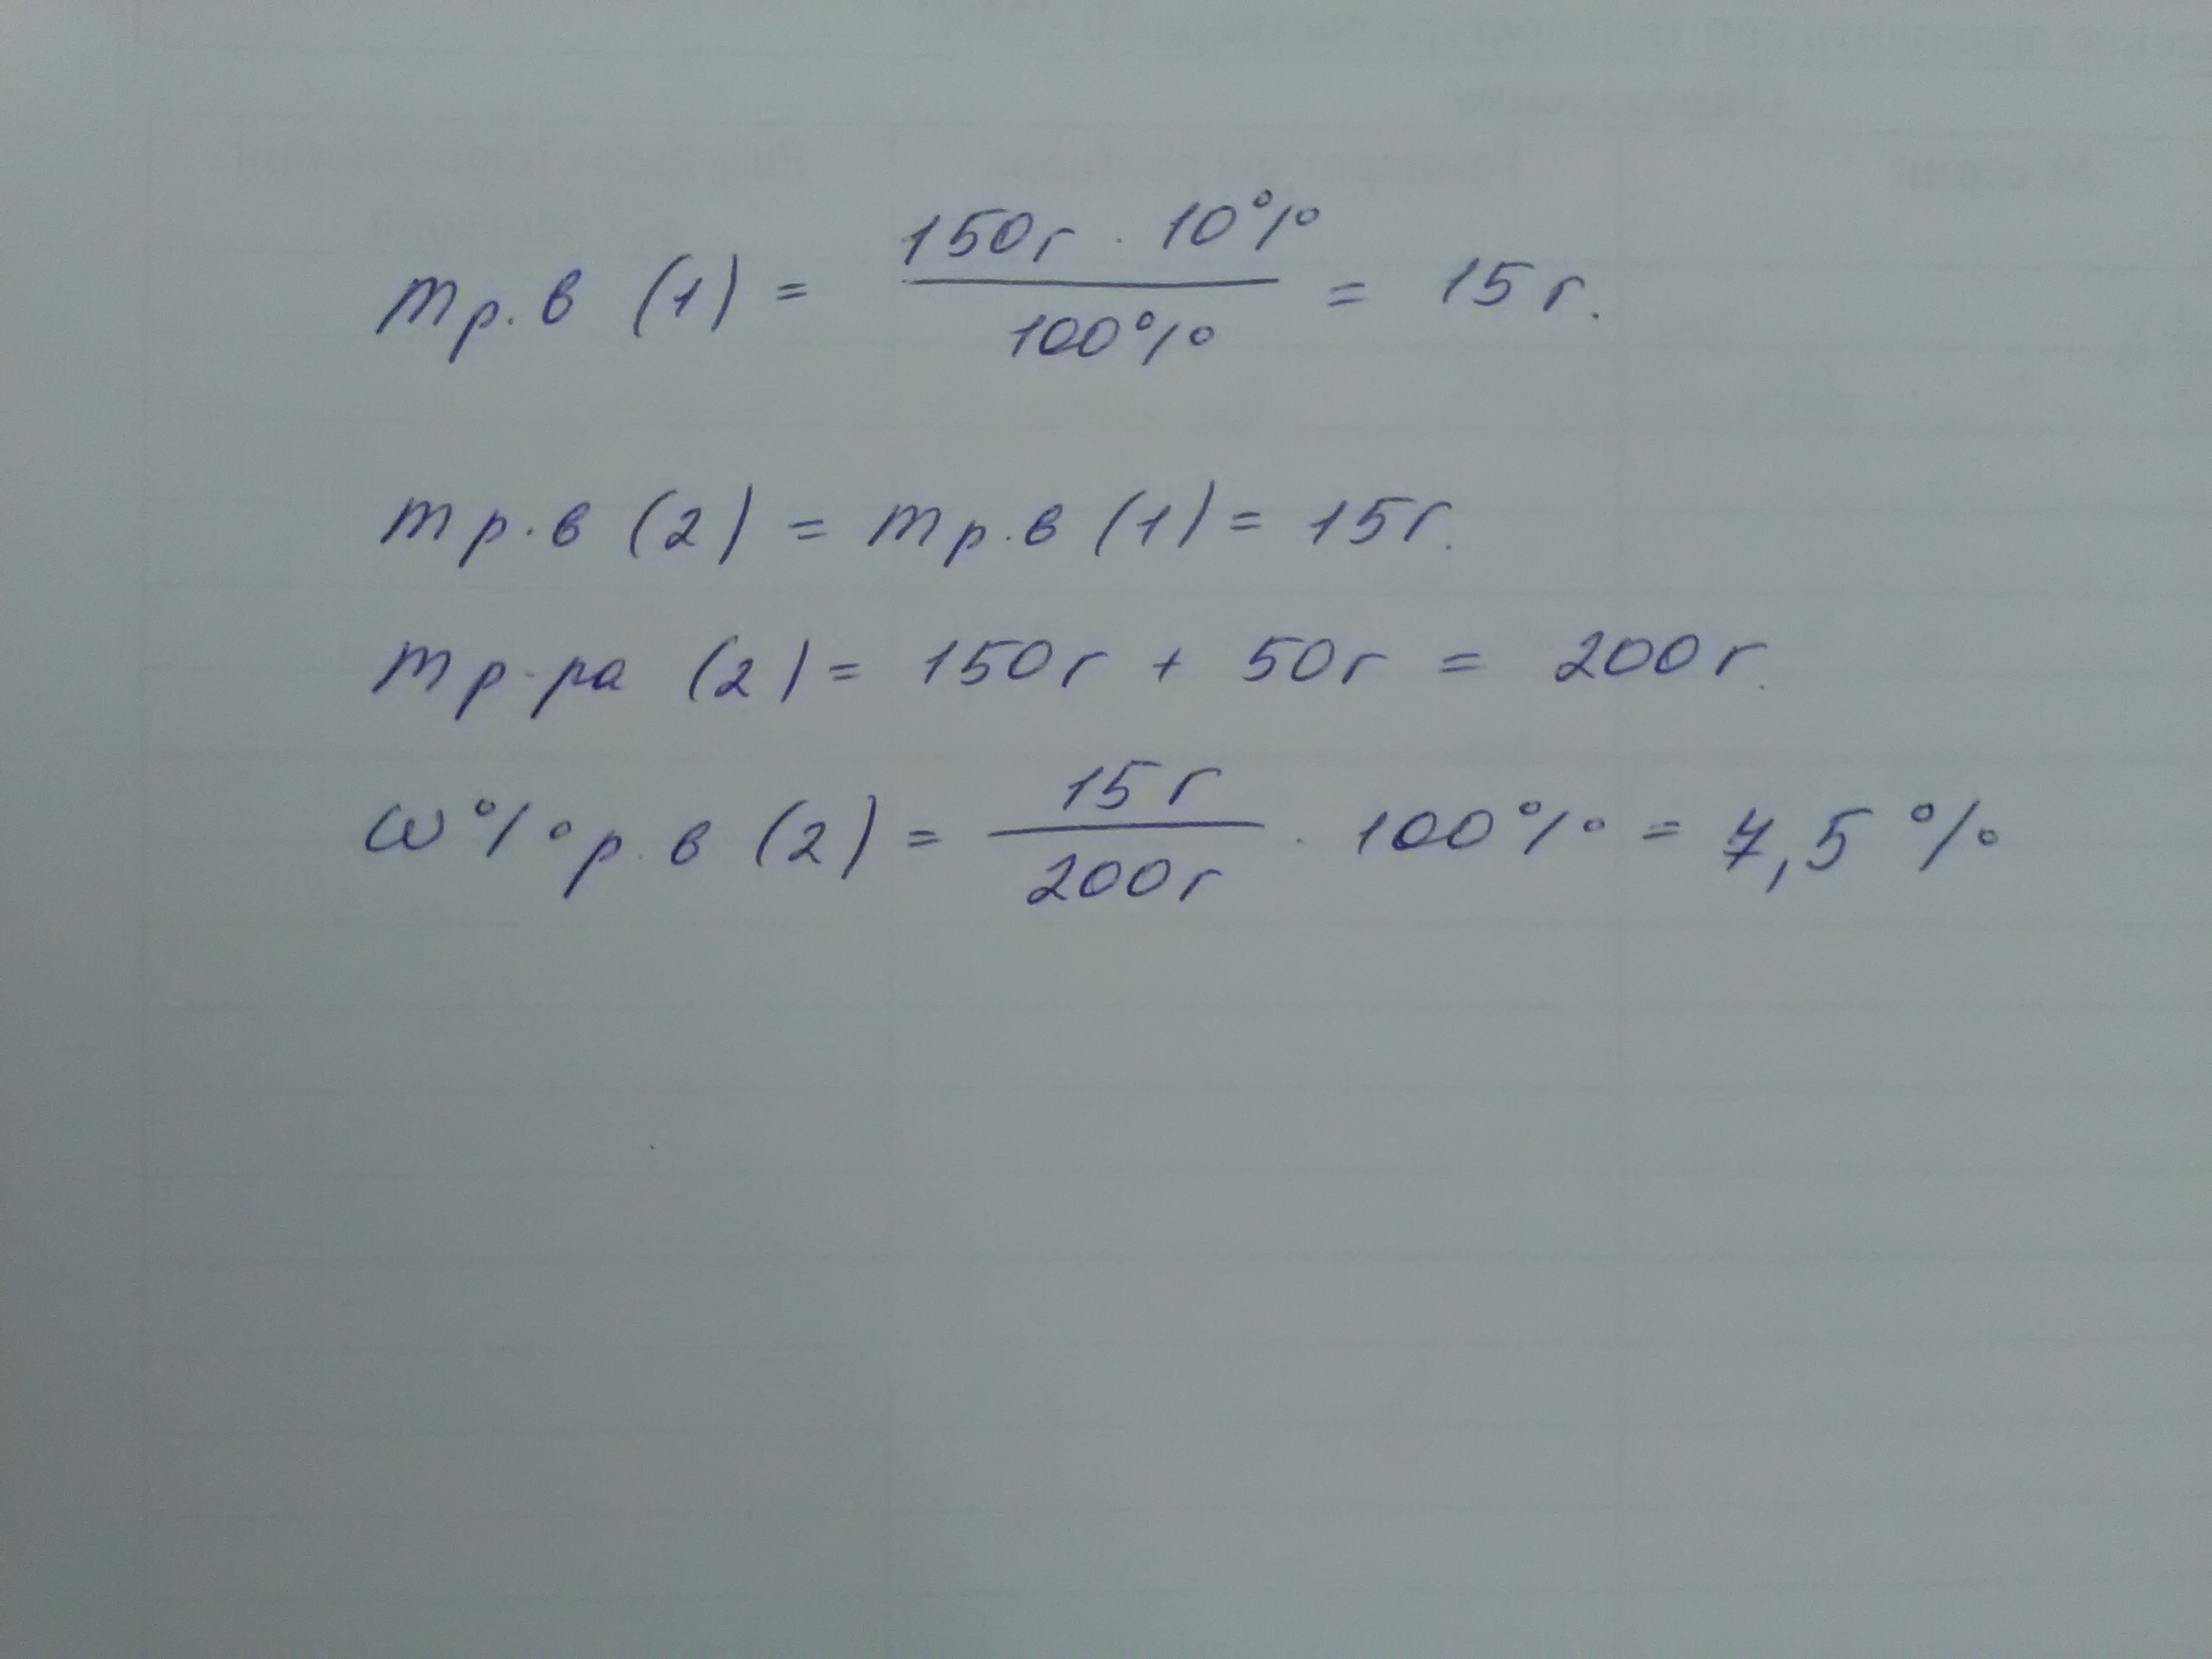 mр.в (1) = 150г · 10% / 100% = 15г.
mр.в (2) = mр.в (1) = 15г.
mр-ра (2) = 150г + 50г = 200г.
ω% р.в (2) = 15г / 200г · 100% = 7,5%